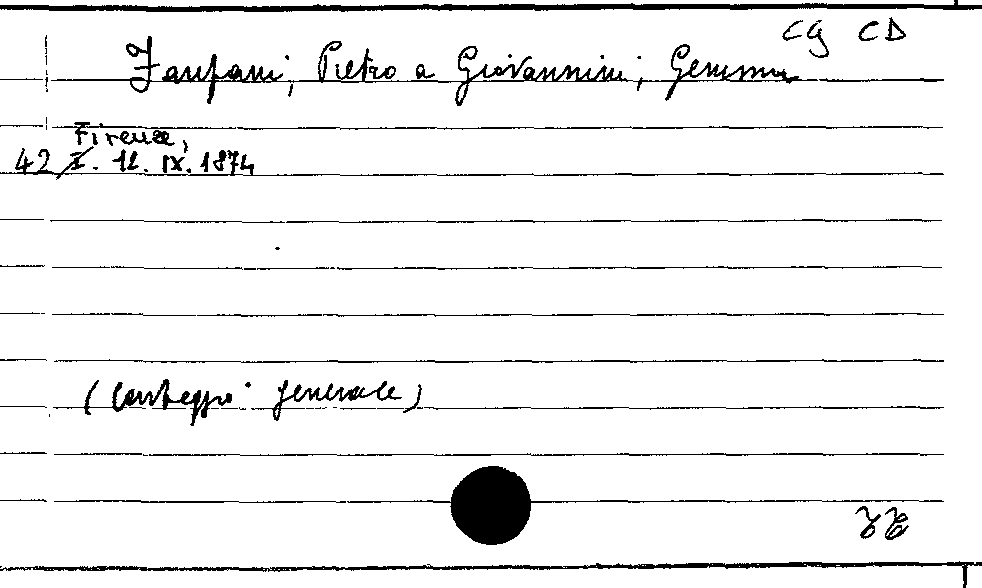 CG CD
Fanfani, Pietro a Giovannini, Gemma
Firenze,
42 I. 12. IX. 1874
(Carteggio generale)